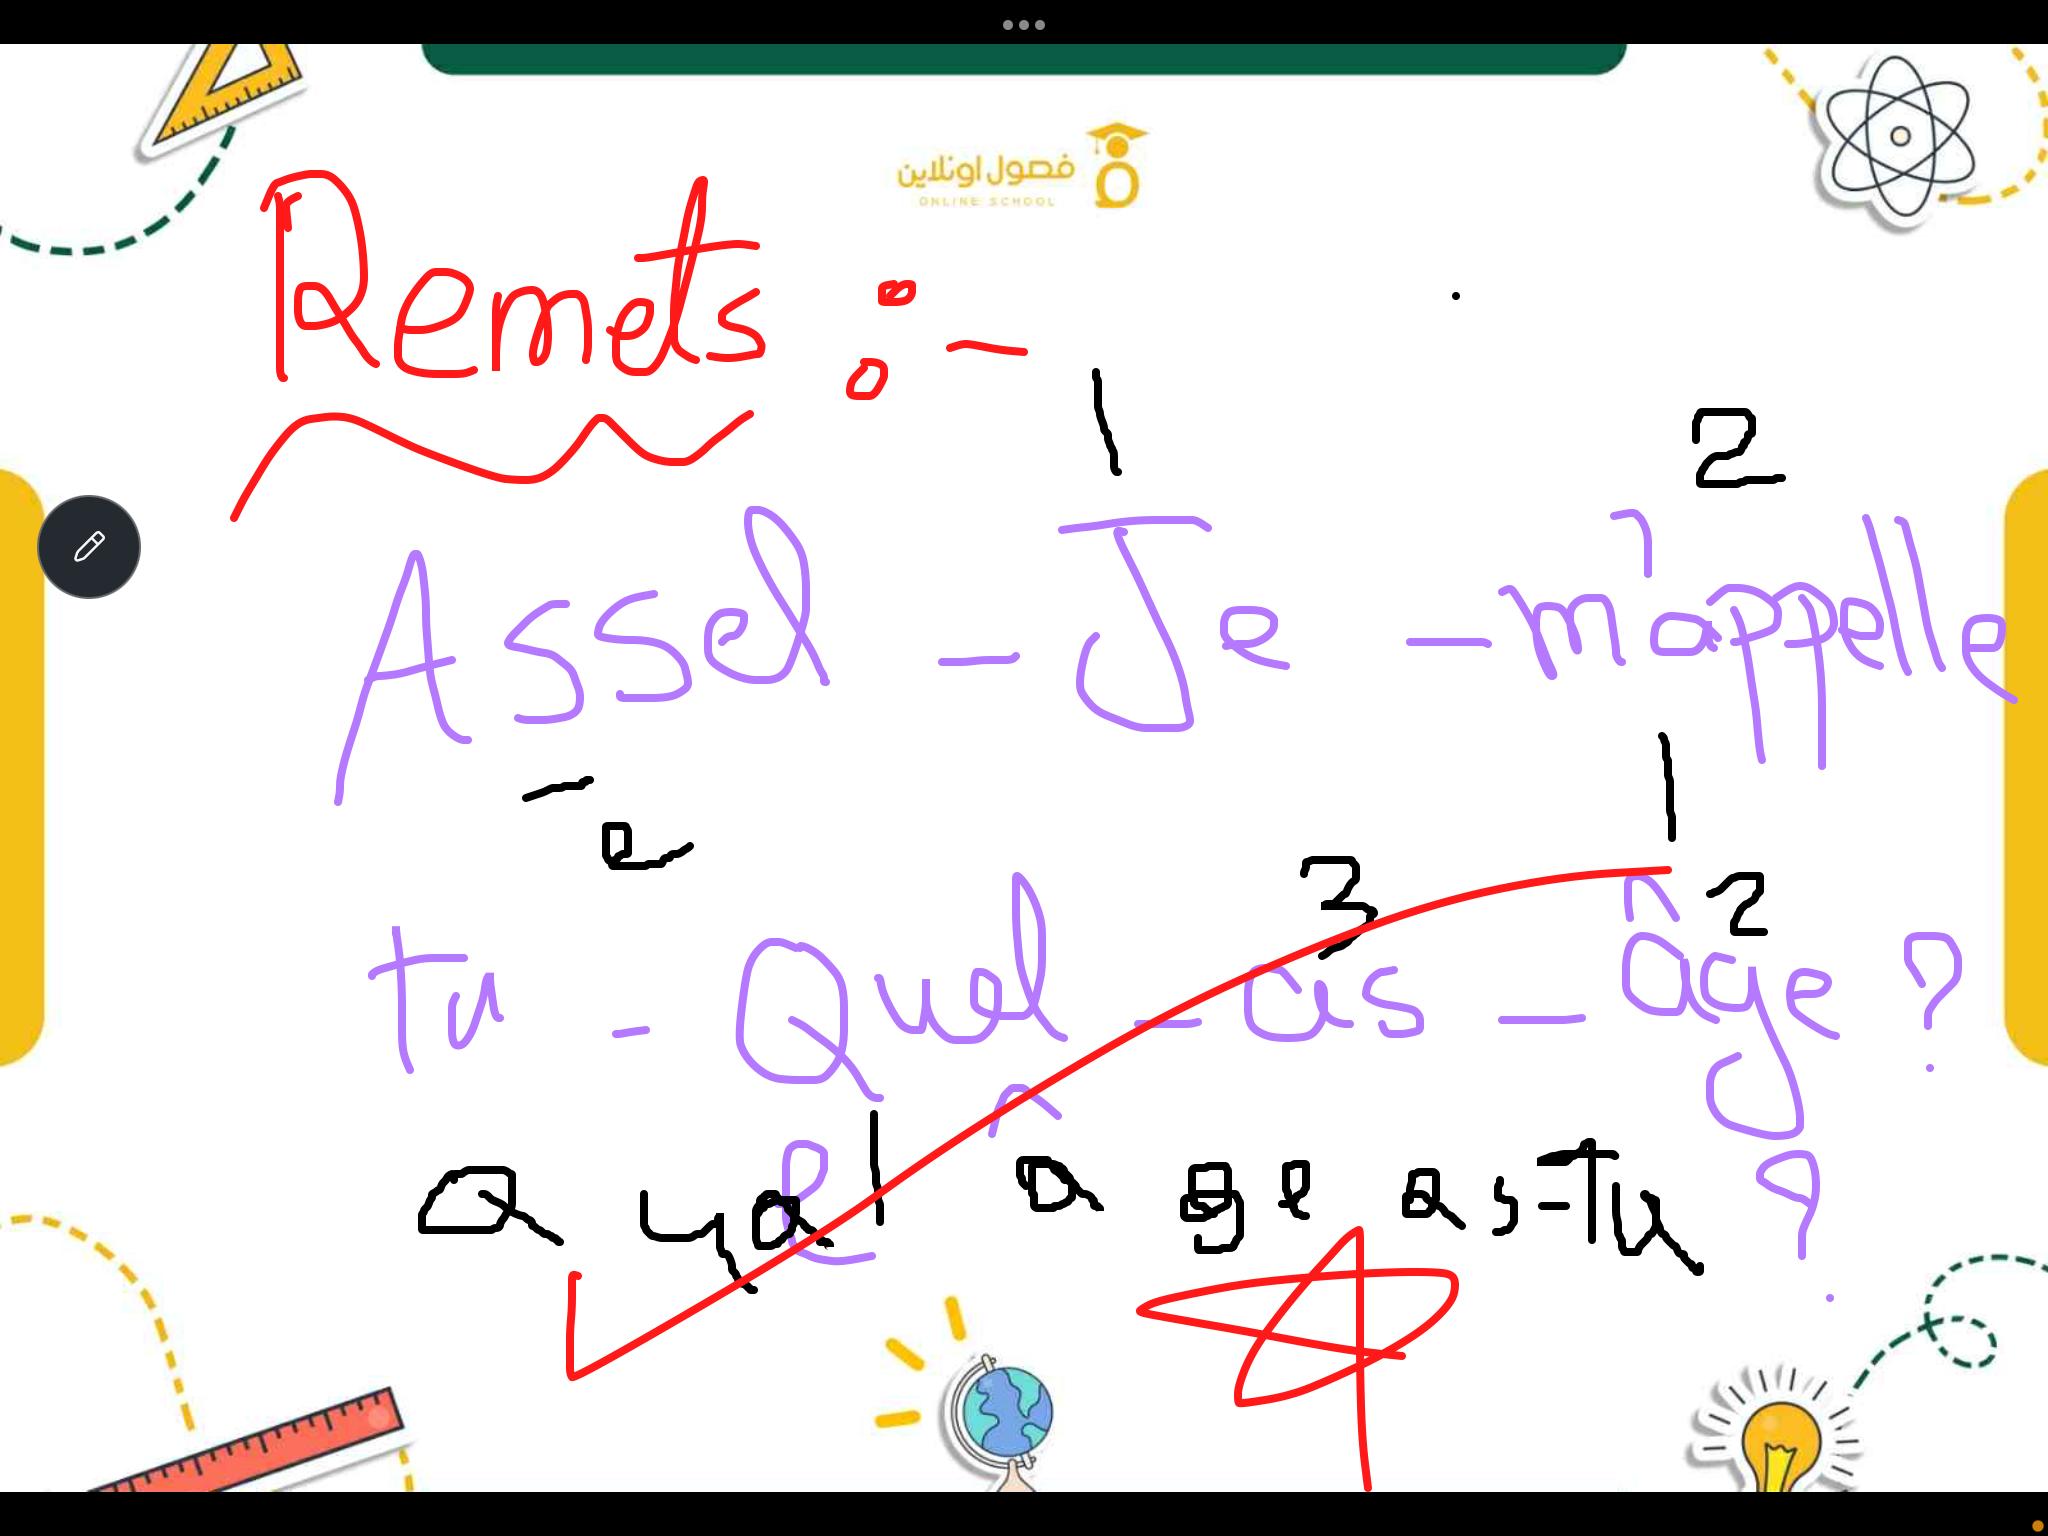 فصول اونلاين
ONLINE SCHOOL
Remets :-
1 2
Assel - Je - m'appelle
1
3 2
tu - Quel - as - âge ?
Quel âge as-Tu ?